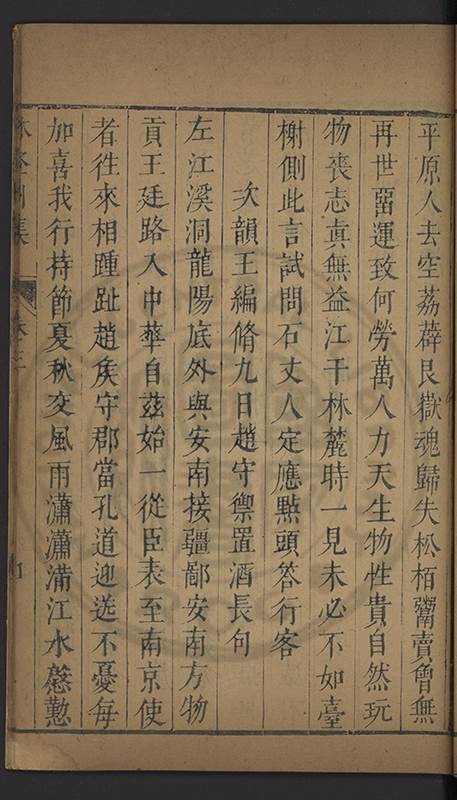 平原人去空荔薜艮嶽魂歸失松栢鬻賣曾無
再世畱運致何勞萬人力天生物性貴自然玩
物喪志眞無益江干林麓時一見未必不如臺
榭側此言試問石丈人定應㸃頭答行客
次韻王編脩九日趙守禦置酒長句
左江溪洞龍陽底外與安南接疆鄙安南方物
貢王廷路入中華自茲始一從臣表至南京使
者徃來相踵趾趙矦守郡當孔道迎送不憂每
加喜我行持節夏秋交風雨瀟瀟滿江水慇懃
集
卷三